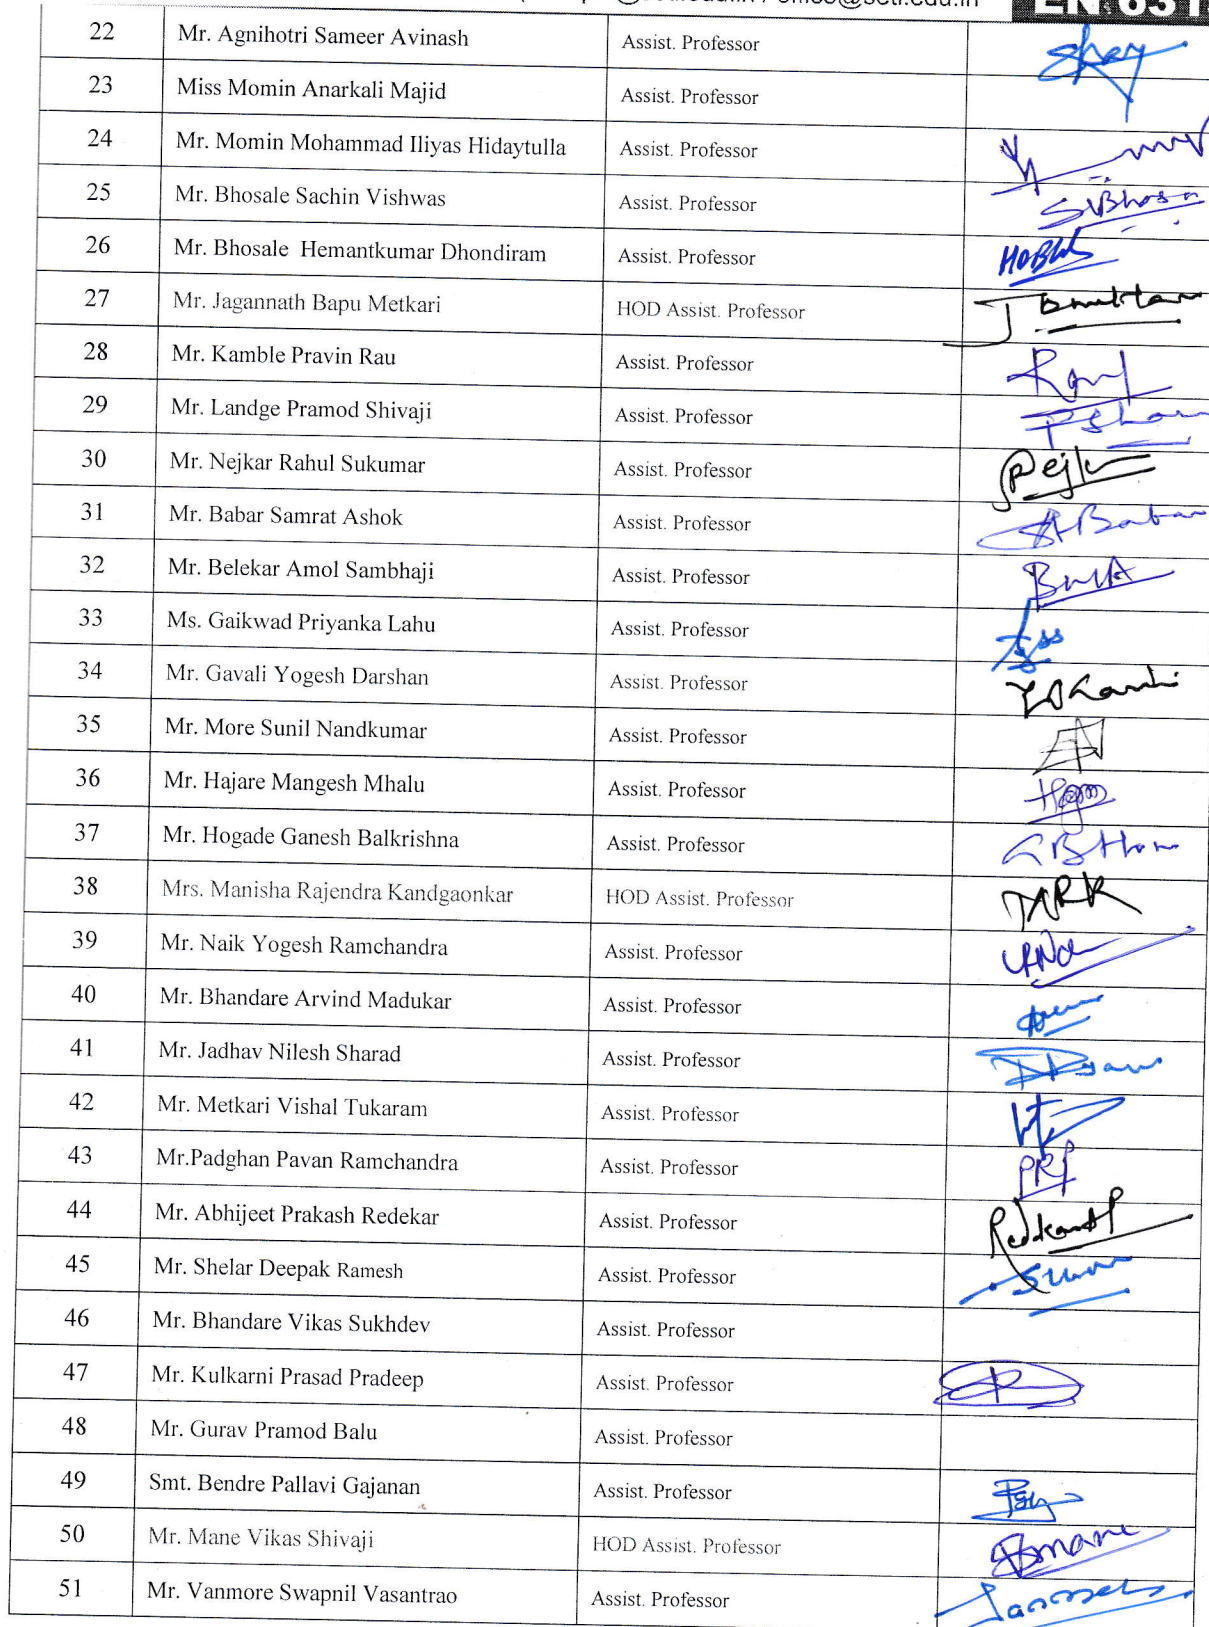 office@seti.edu.in
EN 631
22 Mr. Agnihotri Sameer Avinash Assist. Professor
23 Miss Momin Anarkali Majid Assist. Professor
24 Mr. Momin Mohammad Iliyas Hidaytulla Assist. Professor
25 Mr. Bhosale Sachin Vishwas Assist. Professor
26 Mr. Bhosale Hemantkumar Dhondiram Assist. Professor
27 Mr. Jagannath Bapu Metkari HOD Assist. Professor
28 Mr. Kamble Pravin Rau Assist. Professor
29 Mr. Landge Pramod Shivaji Assist. Professor
30 Mr. Nejkar Rahul Sukumar Assist. Professor
31 Mr. Babar Samrat Ashok Assist. Professor
32 Mr. Belekar Amol Sambhaji Assist. Professor
33 Ms. Gaikwad Priyanka Lahu Assist. Professor
34 Mr. Gavali Yogesh Darshan Assist. Professor
35 Mr. More Sunil Nandkumar Assist. Professor
36 Mr. Hajare Mangesh Mhalu Assist. Professor
37 Mr. Hogade Ganesh Balkrishna Assist. Professor
38 Mrs. Manisha Rajendra Kandgaonkar HOD Assist. Professor MRK
39 Mr. Naik Yogesh Ramchandra Assist. Professor
40 Mr. Bhandare Arvind Madukar Assist. Professor
41 Mr. Jadhav Nilesh Sharad Assist. Professor
42 Mr. Metkari Vishal Tukaram Assist. Professor
43 Mr.Padghan Pavan Ramchandra Assist. Professor PRP
44 Mr. Abhijeet Prakash Redekar Assist. Professor
45 Mr. Shelar Deepak Ramesh Assist. Professor
46 Mr. Bhandare Vikas Sukhdev Assist. Professor
47 Mr. Kulkarni Prasad Pradeep Assist. Professor
48 Mr. Gurav Pramod Balu Assist. Professor
49 Smt. Bendre Pallavi Gajanan Assist. Professor
50 Mr. Mane Vikas Shivaji HOD Assist. Professor
51 Mr. Vanmore Swapnil Vasantrao Assist. Professor